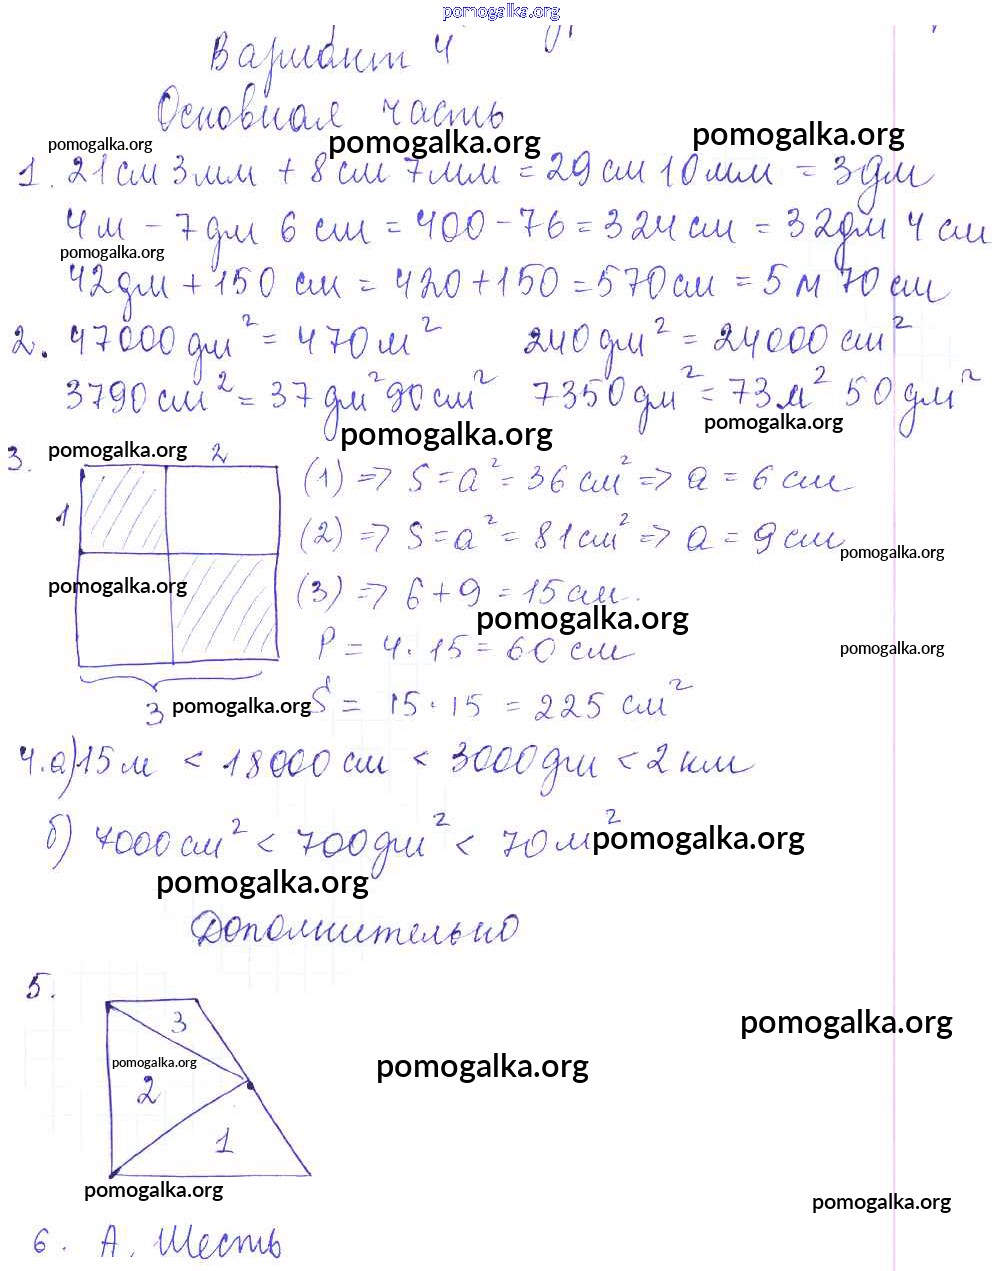 pomogalka.org
Вариант 4
Основная часть
pomogalka.org pomogalka.org pomogalka.org
1. 21 см 3 мм + 8 см 7 мм = 29 см 10 мм = 3 дм
4 м - 7 дм 6 см = 400 - 76 = 324 см = 32 дм 4 см
pomogalka.org
42 дм + 150 см = 420 + 150 = 570 см = 5 м 70 см
2. 47000 дм² = 470 м² 240 дм² = 24000 см²
3790 см² = 37 дм² 90 см² 7350 дм² = 73 м² 50 дм²
pomogalka.org pomogalka.org pomogalka.org
3. 2 (1) => S = a² = 36 см² => a = 6 см
1 (2) => S = a² = 81 см² => a = 9 см
pomogalka.org
pomogalka.org (3) => 6 + 9 = 15 см.
pomogalka.org
P = 4 · 15 = 60 см pomogalka.org
3 pomogalka.org S = 15 · 15 = 225 см²
4. а) 15 м < 18000 см < 3000 дм < 2 км
б) 7000 см² < 700 дм² < 70 м² pomogalka.org
pomogalka.org
Дополнительно
5.
3 pomogalka.org
pomogalka.org pomogalka.org
2
1
pomogalka.org pomogalka.org
6. А. Шесть